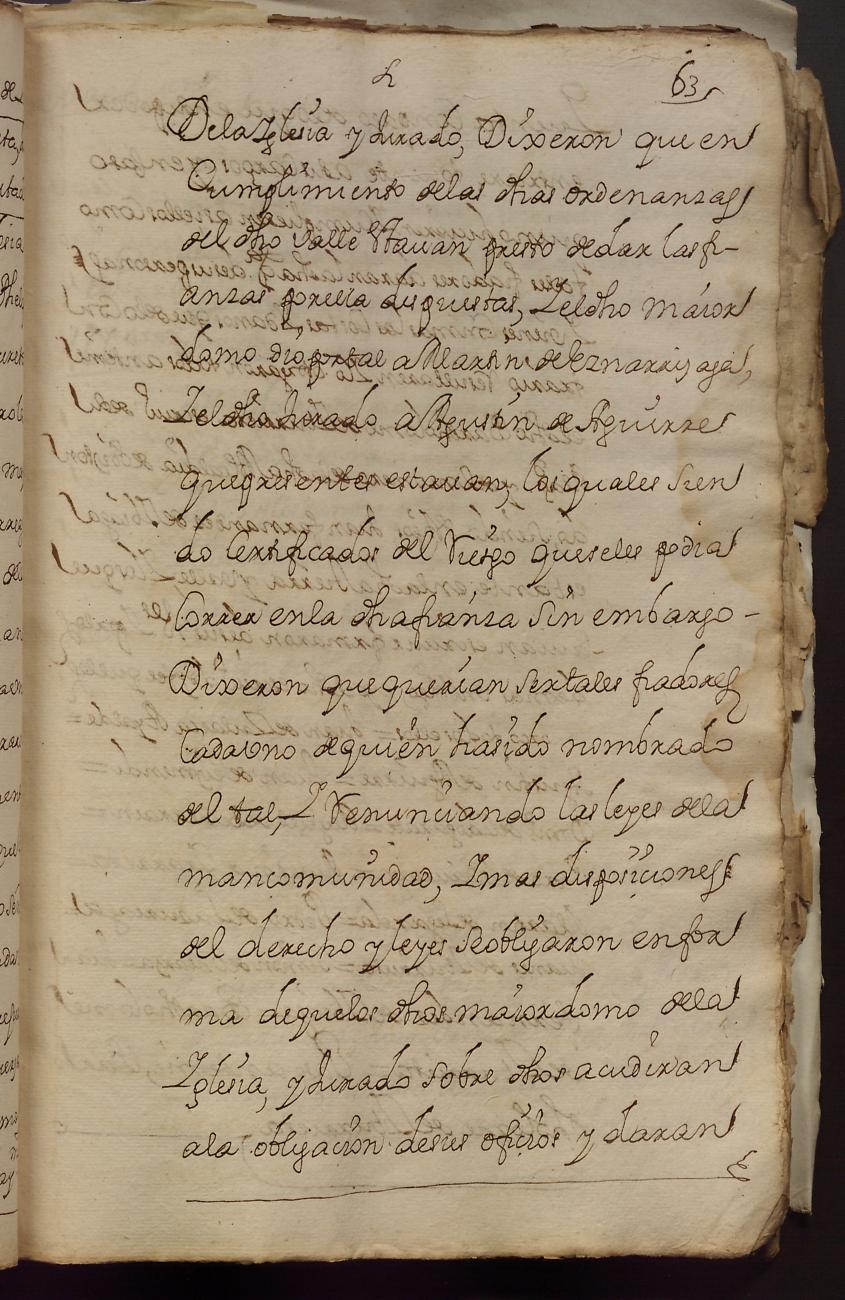 63
De la Iglesia y Jurado, Dixeron que en
Cumplimiento delas dhas ordenanzas
del dho Valle Estauan presto de dar las fi-
anzas por ella dispuestas, Y el dho maior
domo dio por tal a Martin de Eznarrisaga,
Y el dho Jurado a Agustin de Aguirre
que presentes estauan, los quales sien
do Certificados del Riesgo que seles podia
Correr en la dha fianza sin embargo -
Dixeron que querian ser tales fiadores
Cada uno de quien ha sido nombrado
del tal, Y Renunciando las leyes de la
mancomunidad, Y mas disposiciones
del derecho y leyes se obligaron en for
ma de que los dhos maiordomo de la
Iglesia, y Jurado sobre dhos acudiran
a la obligacion de sus oficios y daran